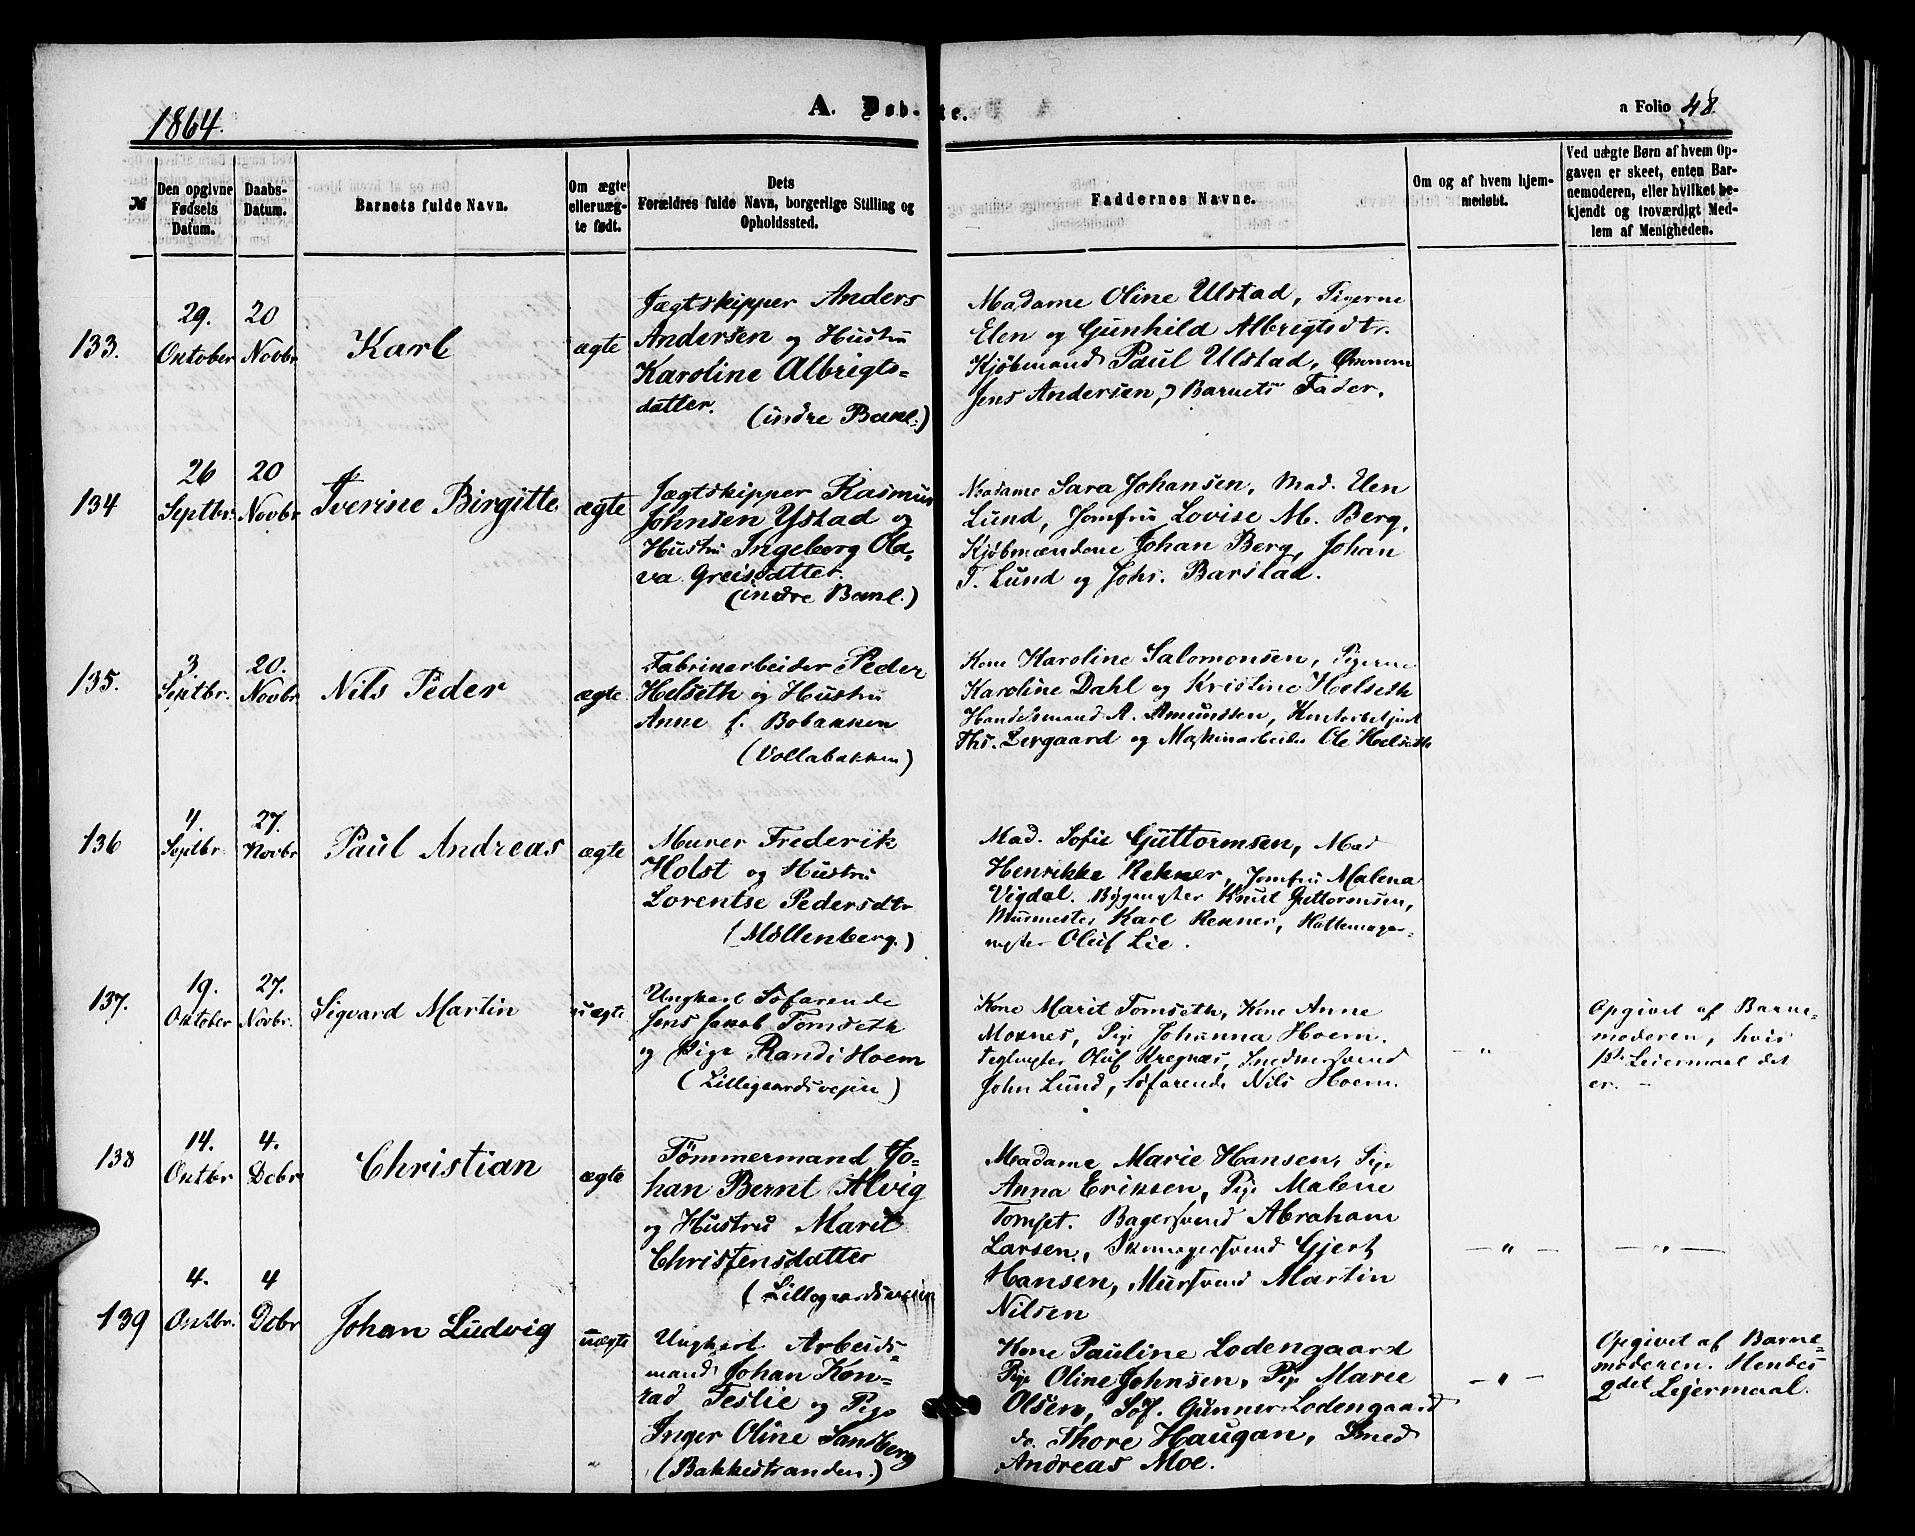 1864.
A. Døbte.
n Folio 48
№
Den opgivne Fødsels Datum.
Daabs-Datum.
Barnets fulde Navn.
Om ægte eller uægte født.
Dets Forældres fulde Navn, borgerlige Stilling og Opholdssted.
Faddernes Navne.
Om og af hvem hjemmedøbt.
Ved uægte Børn af hvem Opgaven er skeet, enten Barnemoderen, eller hvilket bekjendt og troværdigt Medlem af Menigheden.
133.
29.
October
20
Novbr
Karl
ægte
Jægtskipper Anders
Andersen og Hustru
Karoline Albrigts-
datter.
(indre Bakl.)
Madame Oline Ulstad, Pigerne
Elen og Gunhild Albrigtsdtr.
Kjøbmand Paul Ulstad,
Jens Andersen, Barnets Fader.
134
26
Septbr.
20
Novbr
Iverine Birgitte
ægte
Jægtskipper Rasmus
Johnsen Ystad og
Hustru Ingeborg Ola-
va Greisdatter.
(indre Bakl.)
Madame Sara Johansen, Mad.
Lund, Jomfru Lovise M. Berg,
Kjøbmændene Johan Berg, Johan
T. Lund og Johs. Barstad.
135.
3.
Septbr.
20.
Novbr
Nils Peder
ægte
Fabrikarbeider Peder
Helseth og Hustru
Anne f. Bobakken
(Vollabakken)
Kone Karoline Salomonsen, Pigerne
Karoline Dahl og Kristine Helseth
Handelsmand A. Amundsen, Kontorbetjent
Ths. Lergaard og Maskinarbeider Ole Helseth
136
4.
Septbr
27.
Novbr
Paul Andreas
ægte
Murer Frederik
Holst og Hustru
Lorentse Pedersdtr
(Møllenberg.)
Mad. Sofie Guttormsen, Mad
Henrikke Rekner, Jomfru Malena
Vigdal. Bygmester Knut Guttormsen,
Murmester Karl Rekner, Hattemager-
mester Oluf Lie.
137.
19.
October
27.
Novbr.
Sigvard Martin
uægte
Ungkarl Søfarende
Jens Jakob Tomseth
og Pige Randi Hoem
(Lillegaardsvejen)
Kone Marit Tomseth, Kone Anne
Moxnes, Pige Johanna Hoem.
Teglmester Oluf Kregnæs, Smedmersvend
John Lund, Søfarende Nils Hoem.
- " -
Opgivet af Barne-
moderen, hvis
1ste Leiermaal det
er. -
138
14.
Octbr
4.
Decbr
Christian
ægte
Tømmermand Jo-
han Bernt Alvig
og Hustru Marit
Christensdatter
(Lillegaardsveien
Madame Marie Hansen, Pige
Anna Eriksen, Pige Malene
Tomset. Bagersvend Abraham
Larsen, Skomagersvend Gjert
Hansen, Mursvend Martin
Nilsen
- " -
- " -
139
4.
Octbr.
4
Decbr
Johan Ludvig
uægte
Ungkarl Arbeids-
mand Johan Kon-
rad Teslie og Pige
Inger Oline Sandberg
(Bakkestranden.)
Kone Pauline Lodengaard
Pige Oline Johnsen, Pige Marie
Olsen, Søf. Gunner Lodengaard
do. Thore Haugan, Smed
Andreas Moe.
- " -
Opgivet af Barne-
moderen. Hendes
2det Leiermaal.